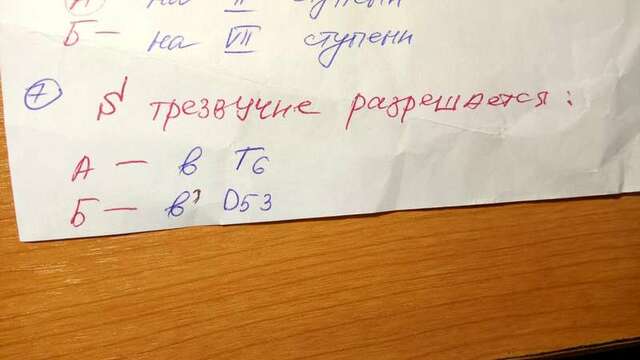 А на II ступени
Б — на VII ступени
7 S трезвучие разрешается:
А — в T6
Б — в D53